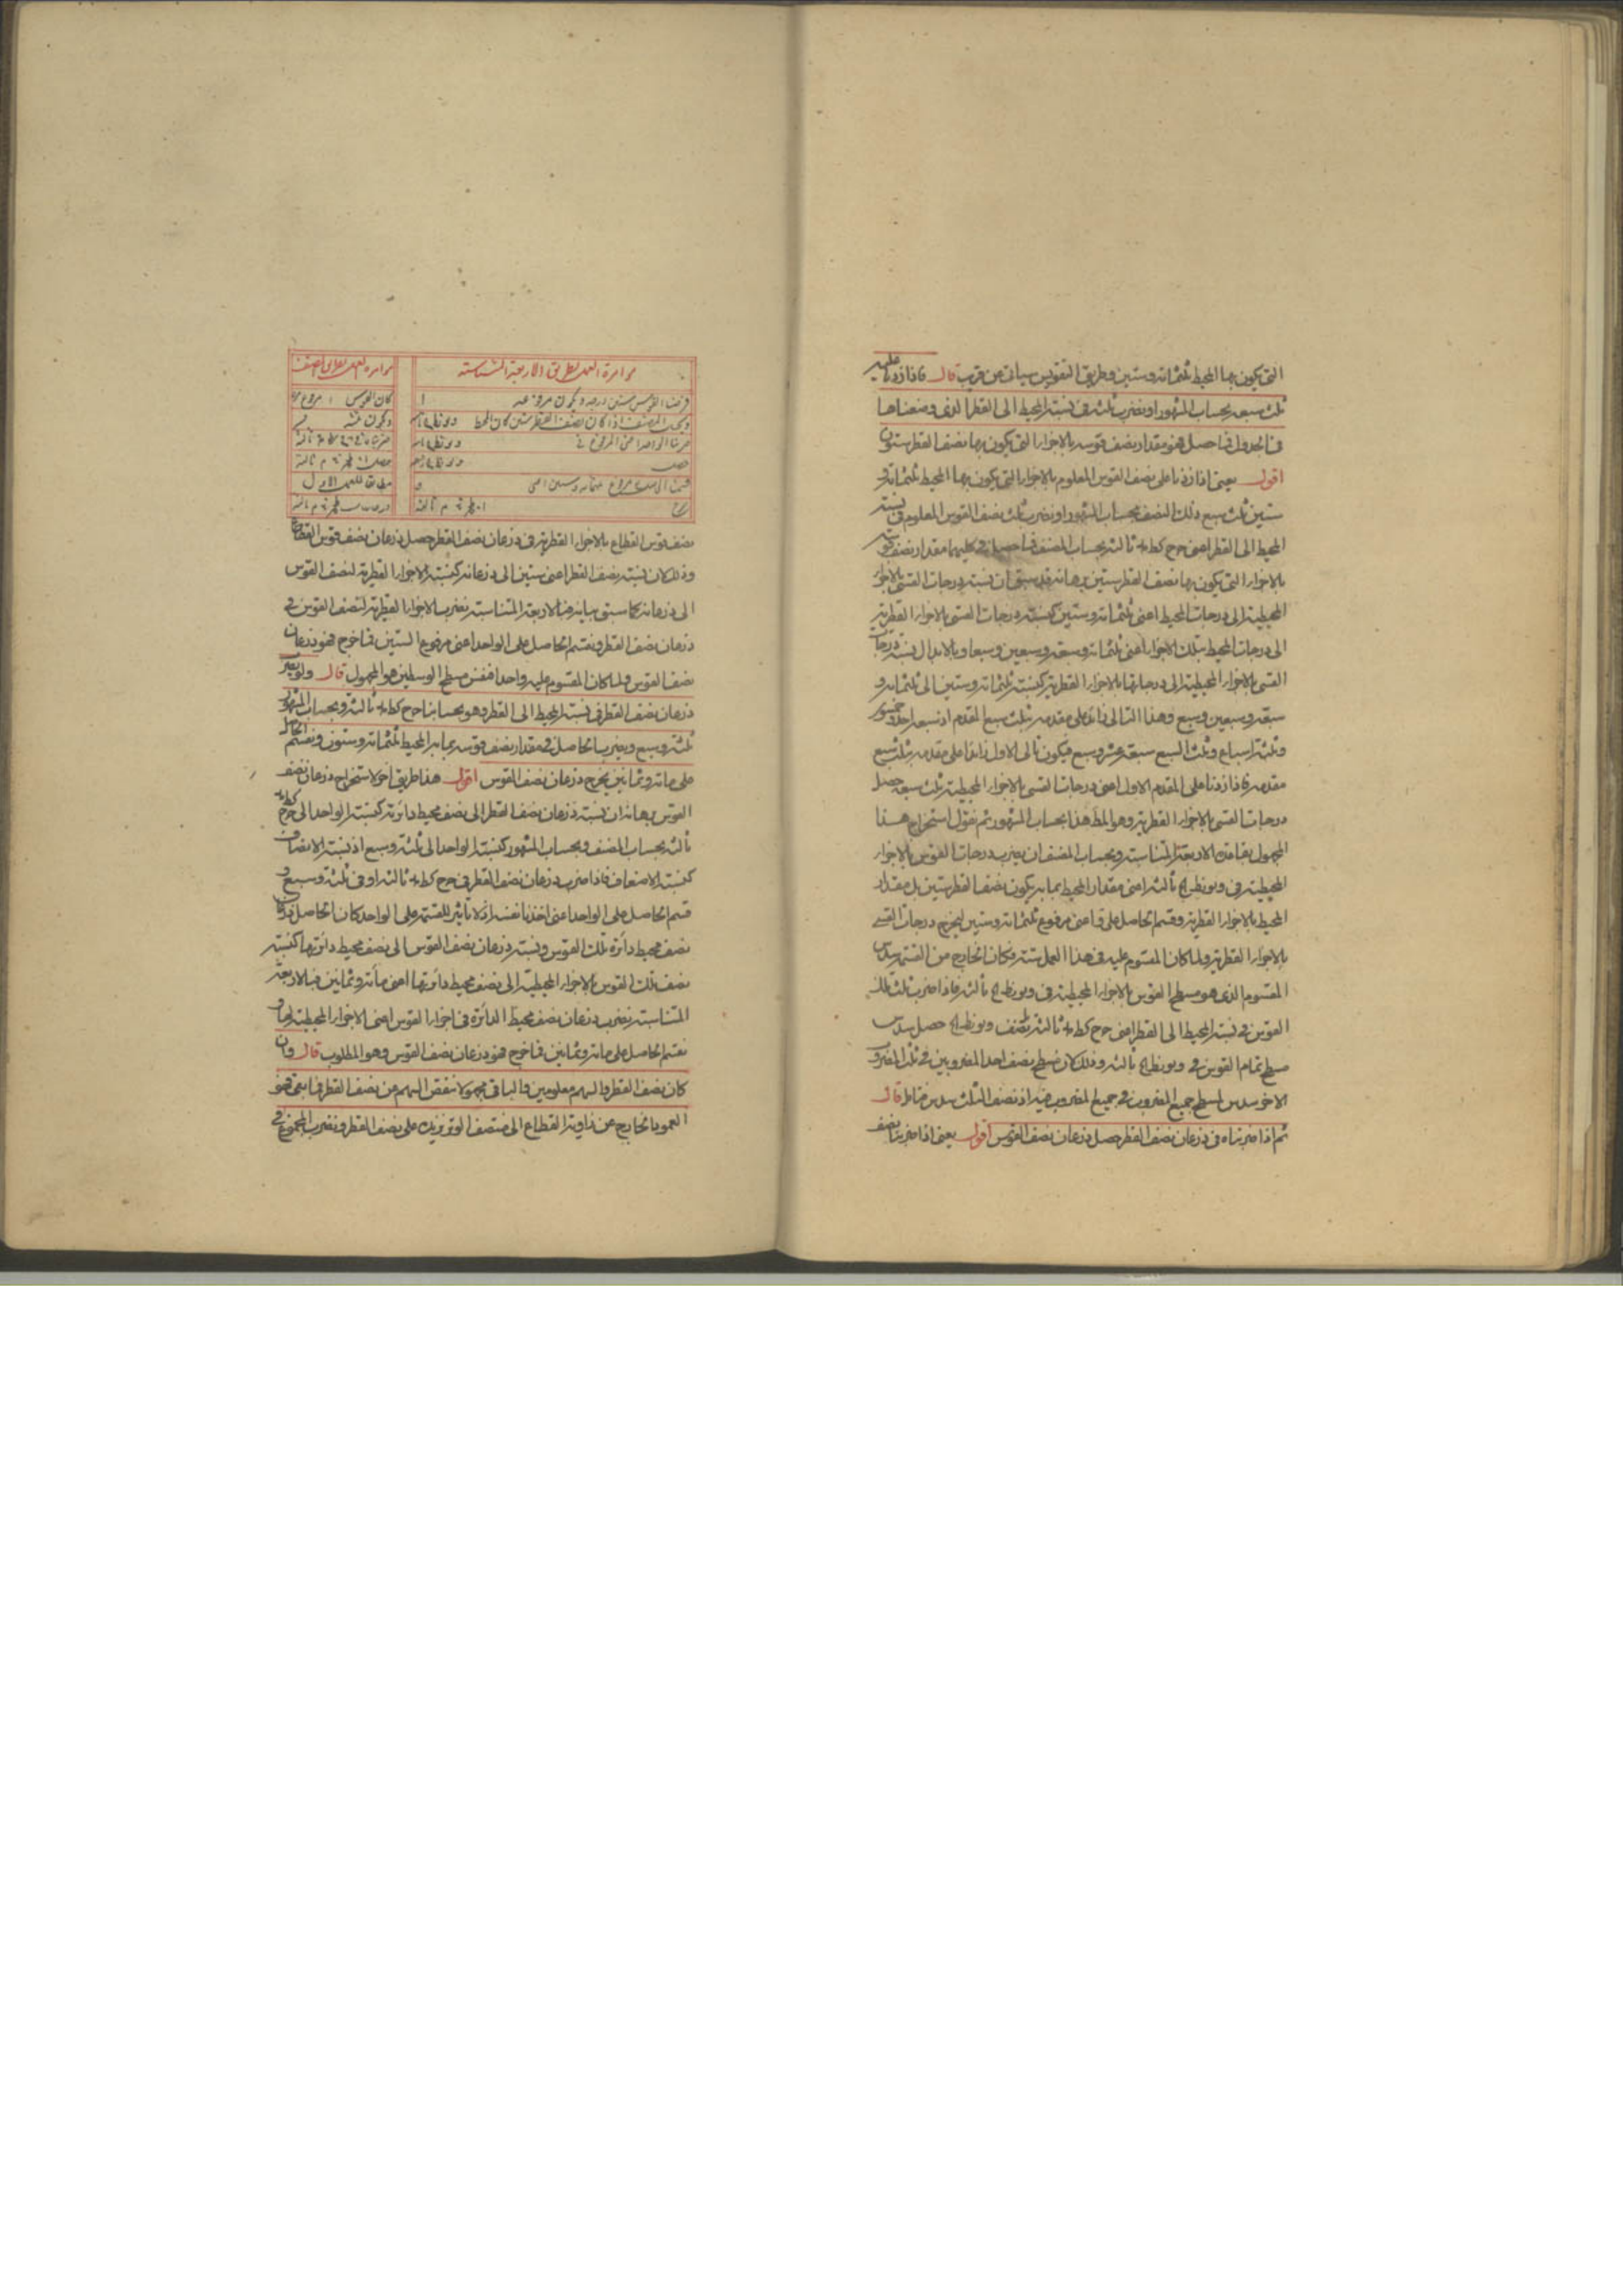 التى يكون بها المحيط ثلثمائة وستين وطريق التقويس سياتى من قريب قال فاذا زدنا عليه
ثلث سبعه بحساب المشهور او نضرب ثلثه فى نسبة المحيط الى القطر الذى وضعناها
فى الجدول فما حصل هو مقدار نصف قوسه بالاجزاء التى يكون بها نصف القطر ستون
اقول يعنى اذا زدنا على نصف القوس المعلوم بالاجزاء التى يكون بها المحيط ثلثمائة و
ستين ثلث سبع ذلك النصف بحساب المشهور او نضرب ثلث نصف القوس المعلوم فى نسبة
المحيط الى القطر اعنى ثالثة بحساب المصنف فما حصل فى كليهما مقدار نصف قوسه
بالاجزاء التى يكون بها نصف القطر ستين برهانه قد سبق ان نسبة درجات القسى بالاجزاء
المحيطية الى درجات المحيط اعنى ثلثمائة وستين كنسبة درجات القسى بالاجزاء القطرية
الى درجات المحيط بتلك الاجزاء اعنى ثلثمائة وسبعة وسبعين وسبعا وبالابدال نسبة درجات
القسى بالاجزاء المحيطية الى درجاتها بالاجزاء القطرية كنسبة ثلثمائة وستين الى ثلثمائة و
سبعة وسبعين وسبع وهذا التالى زائد على مقدمه بثلث سبع المقدم اذ سبعه احد وخمسون
وثلثة اسباع وثلث السبع سبعة عشر وسبع فيكون تالى الاول زائدا على مقدمه بثلث سبع
مقدمه فاذا زدنا على المقدم الاول اعنى درجات القسى بالاجزاء المحيطية ثلث سبعه حصل
درجات القسى بالاجزاء القطرية وهو المط هذا بحساب المشهور ثم نقول استخراج هذا
المجهول بقاعدة الاربعة المتناسبة وبحساب المصنف ان يضرب درجات القوس بالاجزاء
المحيطية فى ثالثة اعنى مقدار المحيط بما به يكون نصف القطر ستين بل مقدار
المحيط بالاجزاء القطرية وقسم الحاصل على و اعنى مرفوع ثلثمائة وستين ليخرج درجات القسى
بالاجزاء القطرية ولما كان المقسوم عليه فى هذا العمل ستة فكان الخارج من القسمة سدس
المقسوم الذى هو مسطح القوس بالاجزاء المحيطية فى ثالثة فاذا ضرب ثلث تلك
القوس فى نسبة المحيط الى القطر اعنى ثالثة نصف حصل سدس
مسطح تمام القوس فى ثالثة وذلك لان مسطح نصف احد المضروبين فى ثلث المضروب
الاخر سدس لمسطح جميع المضروب فى جميع المضروب فيه اذ نصف الثلث سدس فتامل قال
ثم اذا ضربناه فى ذرعان نصف القطر حصل ذرعان نصف القوس اقول يعنى اذا ضربنا نصف
موامرة العمل بطريق الاربعة المتناسبة
فرضنا القوس ستين درجة ويكون مرفوعه ا
وبحساب المصنف اذا كان نصف القطر ستين كان المحيط
ضربنا الواحد اعنى المرفوع فى
حصل
قسمنا الحاصل على مرفوع ثلثمائة وستين اعنى و
خرج ثالثة
موامرة العمل بطريق المصنف
كان القوس ا مرفوع
ويكون ثلثه
ضربناه ثالثة
حصل ثالثة
مطابق للعمل الاول
ثالثة
نصف قوس القطاع بالاجزاء القطرية فى ذرعان نصف القطر حصل ذرعان نصف قوس القطاع
وذلك لان نسبة نصف القطر اعنى ستين الى ذرعانه كنسبة الاجزاء القطرية لنصف القوس
الى ذرعانه كما سبق بيانه فبالاربعة المتناسبة نضرب الاجزاء القطرية لنصف القوس فى
ذرعان نصف القطر ونقسم الحاصل على الواحد اعنى مرفوع الستين فما خرج فهو ذرعان
نصف القوس ولما كان المقسوم عليه واحدا فنفس مسطح الوسطين هو المجهول قال ولو نضرب
ذرعان نصف القطر فى نسبة المحيط الى القطر وهو بحسابنا ثالثة وبحساب المشهور
ثلثة وسبع ويضرب الحاصل فى مقدار نصف قوسه بما به المحيط ثلثمائة وستون ونقسم الحاصل
على مائة وثمانين يخرج ذرعان نصف القوس اقول هذا طريق آخر لاستخراج ذرعان نصف
القوس برهانه ان نسبة ذرعان نصف القطر الى نصف محيط دائرته كنسبة الواحد الى
ثالثة بحساب المصنف وبحساب المشهور كنسبة الواحد الى ثلثة وسبع اذ نسبة الانصاف
كنسبة الاضعاف فاذا ضرب ذرعان نصف القطر فى ثالثة او فى ثلثة وسبع و
قسم الحاصل على الواحد اعنى اخذنا نفسه اذ لا تاثير للقسمة على الواحد كان الحاصل ذرعان
نصف محيط دائرة تلك القوس ونسبة ذرعان نصف القوس الى نصف محيط دائرتها كنسبة
نصف تلك القوس بالاجزاء المحيطية الى نصف محيط دائرتها اعنى مائة وثمانين فبالاربعة
المتناسبة نضرب ذرعان نصف محيط الدائرة فى اجزاء القوس اعنى الاجزاء المحيطية لها و
نقسم الحاصل على مائة وثمانين فما خرج فهو ذرعان نصف القوس وهو المطلوب قال وان
كان نصف القطر والسهم معلومين والباقى مجهولا ننقص السهم من نصف القطر فما بقى فهو
العمود الخارج عن زاوية القطاع الى منتصف الوتر نزيد على نصف القطر ونضرب المجموع فى